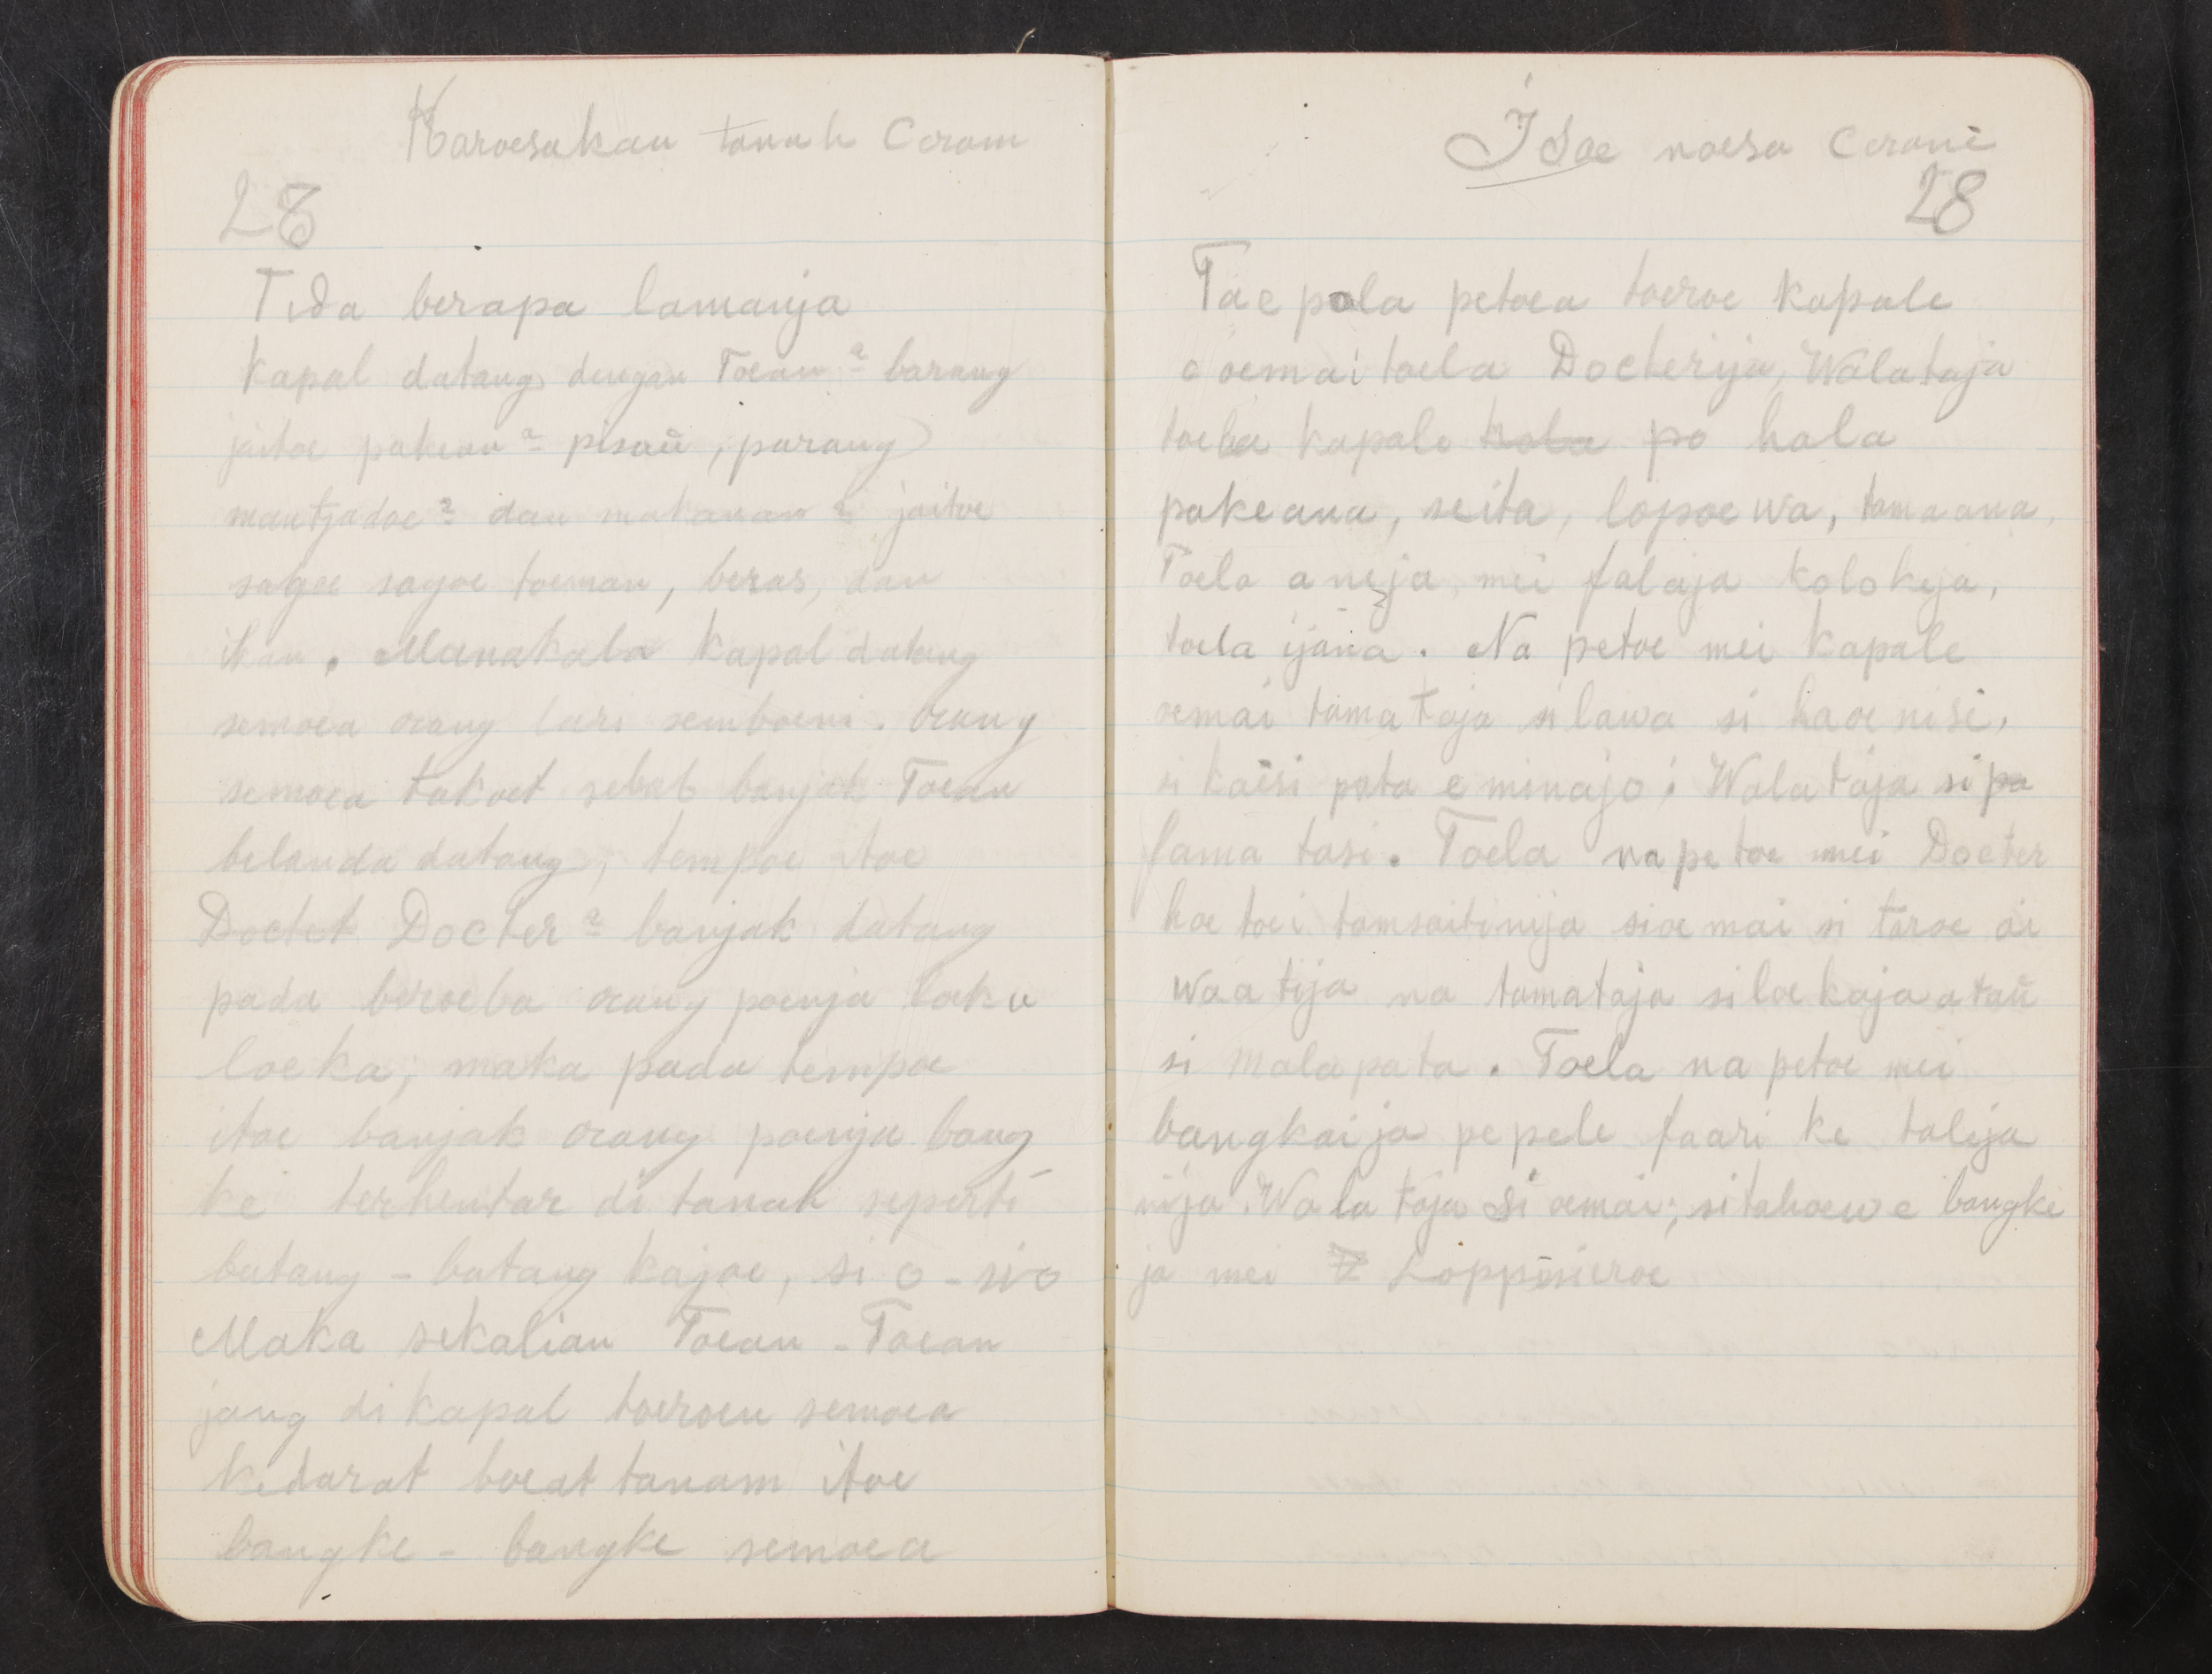 Karoesakan tanah Ceram
28
Tida berapa lamanja
kapal datang dengan Toean² barang
jaitoe pakean² pisaū, parang
mantjadoe² dan makanan² jaitoe
sagoe sagoe toeman, beras, dan
ikan. Manakala kapal datang
semoea orang lari semboeni. orang
semoea takoet sebab banjak Toean
belanda datang, tempoe itoe
Doctet Docter² banjak datang
pada beroeba orang poenja loeka
loeka, maka pada tempoe
itoe banjak orang poenja bang
ke terhentar di tanah seperti
batang - batang kajoe, si o - sio
Maka sekalian Toean - Toean
jang di kapal toeroen semoea
kedarat boeat tanam itoe
bangke - bangke semoea
Isoe noesa Ceramè
28
Tae pola petoea toeroe kapale
o oemai toela Docterija, Walataja
toela kapale hala po hala
pakeana, seita, lopoewa, tamaana,
Toela aneja mei falaja kolokeja,
toela ijana. Na petoe mei kapale
oemai tamataja silawa si haoenisi,
si kaësi pata e minajo; Walataja si pa
fama tasi. Toela napetoe mei Docter
hoetoei tamsaitinija sioemai si taroe ai
waatija na tamataja siloekaja ataū
si mala pata. Toela na petoe mei
bangkaija pepele faari ke talija
nija. Walataja si oemai; sitahoewe bangke
ja mei Loppösieroe